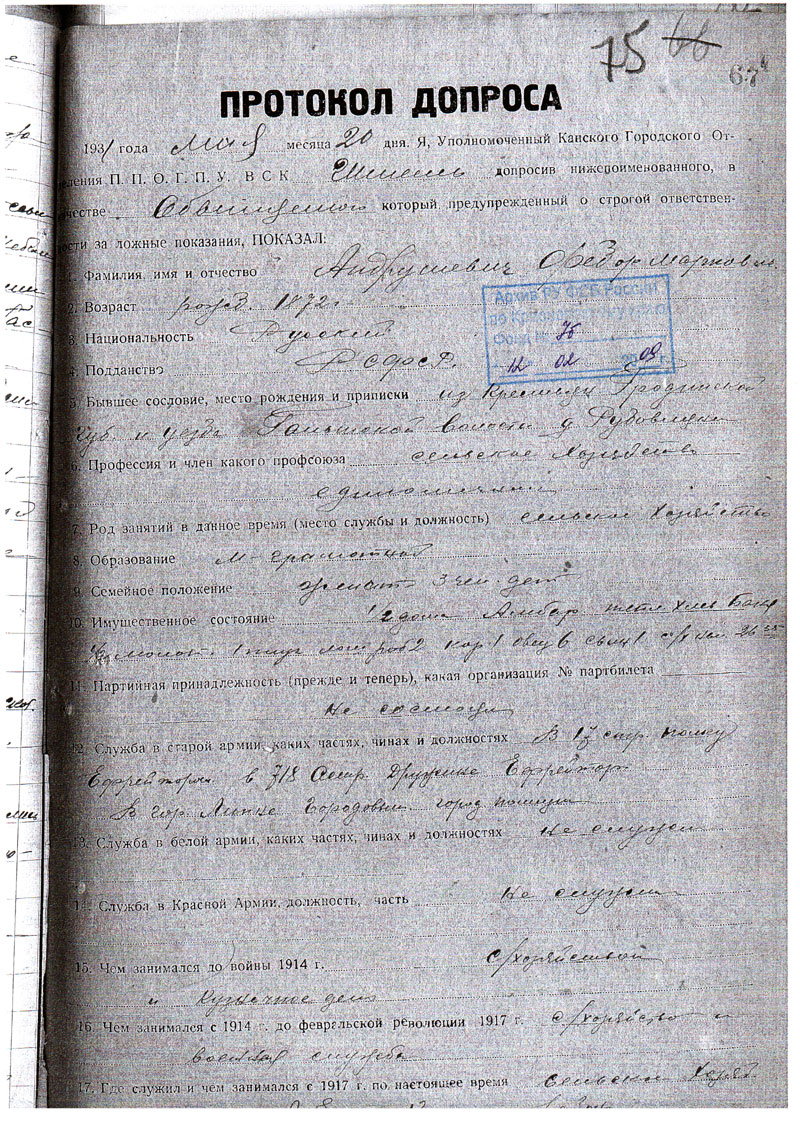 75 66
67
ПРОТОКОЛ ДОПРОСА
1931 года мая месяца 20 дня. Я, Уполномоченный Канского Городского От-
ления П. П. О. Г. П. У. ВСК допросив нижепоименованного, в
честве Обвиняемого который предупрежденный о строгой ответствен-
ости за ложные показания, ПОКАЗАЛ:
1. Фамилия, имя и отчество Андрушевич Федор Маркович
2. Возраст рожд. 1872 г
Архив РУ ФСБ России
по Красноярскому краю
Фонд № 75
12 02 2009 г.
3. Национальность Русский
4. Подданство РСФСР.
5. Бывшее сословие, место рождения и приписки из крестьян Гродненской
Губ. и уезда волости д.
6. Профессия и член какого профсоюза сельское хозяйство
единоличник
7. Род занятий в данное время (место службы и должность) сельское хозяйство
8. Образование М-грамотной
9. Семейное положение женат 3 чел. дет
10. Имущественное состояние 2 дома Амбар хлев Баня
молот. 1 плуг лош 2 кор 1 овец 6 свин 1
11. Партийная принадлежность (прежде и теперь), какая организация № партбилета
не состоял
12. Служба в старой армии, каких частях, чинах и должностях В 17 стр. полку
Ефрейтором в 718 Дружине Ефрейтор
В гор. Городовым город полиции
13. Служба в белой армии, каких частях, чинах и должностях не служил
14. Служба в Красной Армии, должность, часть не служил
15. Чем занимался до войны 1914 г. с/хозяйством
и Кузнечное дело
16. Чем занимался с 1914 г. до февральской революции 1917 г. с/хозяйство и
военная служба
17. Где служил и чем занимался с 1917 г. по настоящее время сельски хозяй